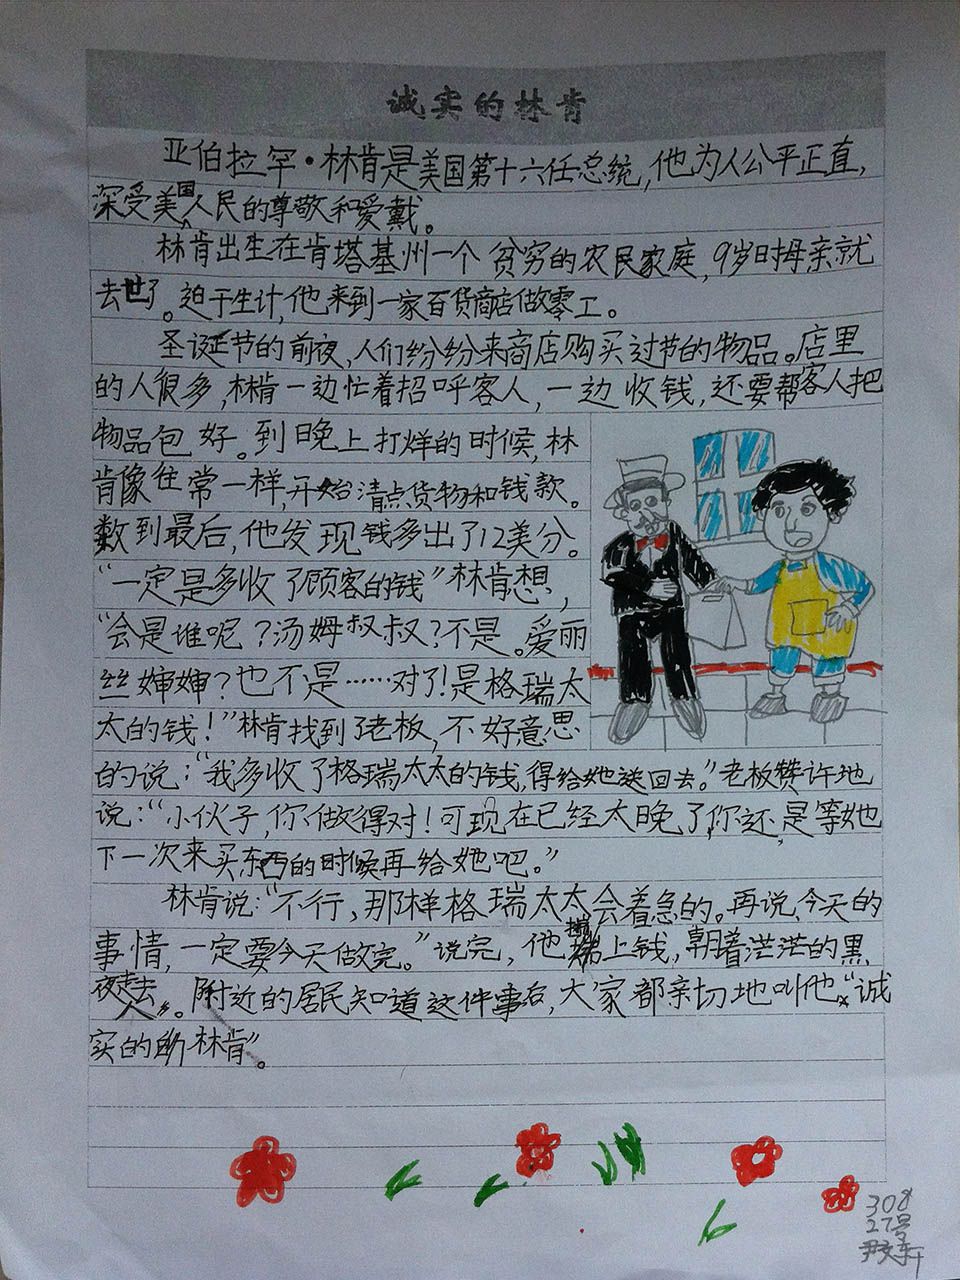 诚实的林肯
亚伯拉罕·林肯是美国第十六任总统,他为人公平正直,
深受美国人民的尊敬和爱戴。
林肯出生在肯塔基州一个贫穷的农民家庭,9岁时母亲就
去世了。迫于生计,他来到一家百货商店做零工。
圣诞节的前夜,人们纷纷来商店购买过节的物品。店里
的人很多,林肯一边忙着招呼客人,一边收钱,还要帮客人把
物品包好。到晚上打烊的时候,林
肯像往常一样,开始清点货物和钱款。
数到最后,他发现钱多出了12美分。
“一定是多收了顾客的钱”林肯想,
“会是谁呢?汤姆叔叔?不是。爱丽
丝婶婶?也不是……对了!是格瑞太
太的钱!”林肯找到了老板,不好意思
的说:“我多收了格瑞太太的钱,得给她送回去。”老板赞许地
说:“小伙子,你做得对!可现在已经太晚了,你还是等她
下一次来买东西的时候再给她吧。”
林肯说:“不行,那样格瑞太太会着急的。再说,今天的
事情,一定要今天做完。”说完,他揣上钱,朝着茫茫的黑
夜走去。附近的居民知道这件事后,大家都亲切地叫他“诚
实的林肯”。
308
27号